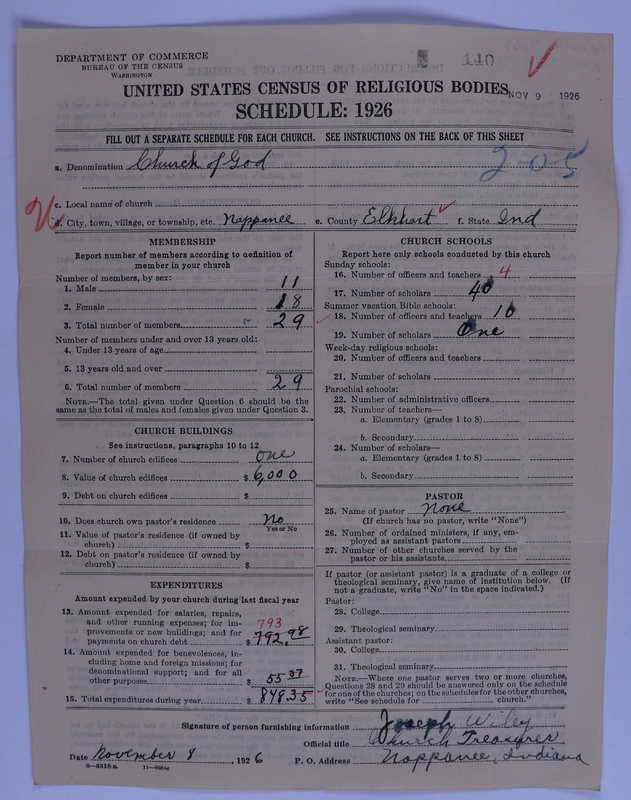 DEPARTMENT OF COMMERCE
BUREAU OF THE CENSUS
WASHINGTON
110
UNITED STATES CENSUS OF RELIGIOUS BODIES
NOV 9 1926
SCHEDULE: 1926
FILL OUT A SEPARATE SCHEDULE FOR EACH CHURCH. SEE INSTRUCTIONS ON THE BACK OF THIS SHEET
a. Denomination Church of God
205
c. Local name of church
d. City, town, village, or township, etc. Nappanee e. County Elkhart f. State Ind
MEMBERSHIP
Report number of members according to definition of
member in your church
Number of members, by sex:
1. Male 11
2. Female 18
3. Total number of members 29
Number of members under and over 13 years old:
4. Under 13 years of age
5. 13 years old and over
6. Total number of members 29
NOTE.—The total given under Question 6 should be
same as the total of males and females given under Question 3.
CHURCH BUILDINGS
See instructions, paragraphs 10 to 12
7. Number of church edifices One
8. Value of church edifices $ 6,000
9. Debt on church edifices $
10. Does church own pastor's residence No
Yes or No
11. Value of pastor's residence (if owned by
church) $
12. Debt on pastor's residence (if owned by
church) $
EXPENDITURES
Amount expended by your church during last fiscal year
13. Amount expended for salaries, repairs,
and other running expenses; for im-
provements or new buildings; and for
payments on church debt $ 792.98
793
14. Amount expended for benevolences, in-
cluding home and foreign missions; for
denominational support; and for all
other purposes $ 55 37
15. Total expenditures during year $ 848.35
CHURCH SCHOOLS
Report here only schools conducted by this church
Sunday schools:
16. Number of officers and teachers 4
17. Number of scholars 40
Summer vacation Bible schools:
18. Number of officers and teachers 10
19. Number of scholars One
Week-day religious schools:
20. Number of officers and teachers
21. Number of scholars
Parochial schools:
22. Number of administrative officers
23. Number of teachers—
a. Elementary (grades 1 to 8)
b. Secondary
24. Number of scholars—
a. Elementary (grades 1 to 8)
b. Secondary
PASTOR
25. Name of pastor None
(If church has no pastor, write "None")
26. Number of ordained ministers, if any, em-
ployed as assistant pastors
27. Number of other churches served by the
pastor or his assistants
If pastor (or assistant pastor) is a graduate of a college or
theological seminary, give name of institution below. (If
not a graduate, write "No" in the space indicated.)
Pastor:
28. College
29. Theological seminary
Assistant pastor:
30. College
31. Theological seminary
NOTE.—Where one pastor serves two or more churches,
Questions 28 and 29 should be answered only on the schedule
for one of the churches; on the schedules for the other churches,
write "See schedule for church."
Signature of person furnishing information Joseph Wiley
Official title Church Treasurer
Date November 8, 1926 P. O. Address Nappanee, Indiana
8-5518a